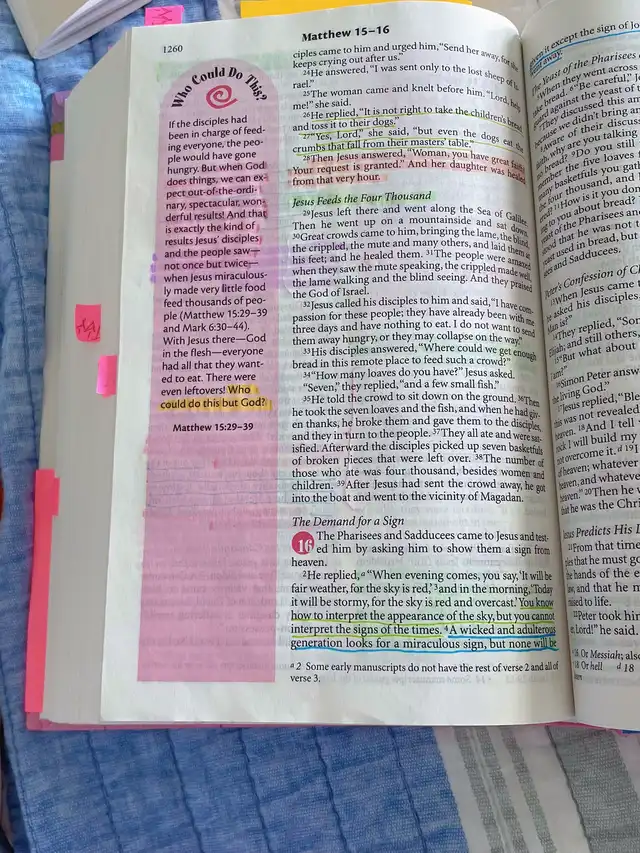 1260
Matthew 15–16
Who Could Do This?
If the disciples had
been in charge of feed-
ing everyone, the peo-
ple would have gone
hungry. But when God
does things, we can ex-
pect out-of-the-ordi-
nary, spectacular, won-
derful results! And that
is exactly the kind of
results Jesus' disciples
and the people saw—
not once but twice—
when Jesus miraculous-
ly made very little food
feed thousands of peo-
ple (Matthew 15:29–39
and Mark 6:30–44).
With Jesus there—God
in the flesh—everyone
had all that they want-
ed to eat. There were
even leftovers! Who
could do this but God?
Matthew 15:29–39
ciples came to him and urged him, "Send her away, for she
keeps crying out after us."
24He answered, "I was sent only to the lost sheep of Is-
rael."
25The woman came and knelt before him. "Lord, help
me!" she said.
26He replied, "It is not right to take the children's bread
and toss it to their dogs."
27"Yes, Lord," she said, "but even the dogs eat the
crumbs that fall from their masters' table."
28Then Jesus answered, "Woman, you have great faith!
Your request is granted." And her daughter was healed
from that very hour.
Jesus Feeds the Four Thousand
29Jesus left there and went along the Sea of Galilee.
Then he went up on a mountainside and sat down.
30Great crowds came to him, bringing the lame, the blind,
the crippled, the mute and many others, and laid them at
his feet; and he healed them. 31The people were amazed
when they saw the mute speaking, the crippled made well,
the lame walking and the blind seeing. And they praised
the God of Israel.
32Jesus called his disciples to him and said, "I have com-
passion for these people; they have already been with me
three days and have nothing to eat. I do not want to send
them away hungry, or they may collapse on the way."
33His disciples answered, "Where could we get enough
bread in this remote place to feed such a crowd?"
34"How many loaves do you have?" Jesus asked.
"Seven," they replied, "and a few small fish."
35He told the crowd to sit down on the ground. 36Then
he took the seven loaves and the fish, and when he had giv-
en thanks, he broke them and gave them to the disciples,
and they in turn to the people. 37They all ate and were sat-
isfied. Afterward the disciples picked up seven basketfuls
of broken pieces that were left over. 38The number of
those who ate was four thousand, besides women and
children. 39After Jesus had sent the crowd away, he got
into the boat and went to the vicinity of Magadan.
The Demand for a Sign
16 The Pharisees and Sadducees came to Jesus and test-
ed him by asking him to show them a sign from
heaven.
2He replied, a "When evening comes, you say, 'It will be
fair weather, for the sky is red,' 3and in the morning, 'Today
it will be stormy, for the sky is red and overcast.' You know
how to interpret the appearance of the sky, but you cannot
interpret the signs of the times. 4A wicked and adulterous
generation looks for a miraculous sign, but none will be
a 2 Some early manuscripts do not have the rest of verse 2 and all of
verse 3.
it except the sign of Jo
away.
Yeast of the Pharisees
When they went across
take bread. 6"Be careful," J
guard against the yeast of
They discussed this am
because we didn't bring an
Aware of their discuss
faith, why are you talking
bread? 9Do you still
member the five loaves
basketfuls you gath
four thousand, and
How is it you don
you about bread? 
of the Pharisees an
stood that he was not t
yeast used in bread, but
sees and Sadducees.
Peter's Confession of C
13When Jesus came
he asked his disciples,
Man is?"
14They replied, "Son
Elijah; and still others,
15"But what about
I am?"
16Simon Peter answ
the living God."
17Jesus replied, "Ble
this was not revealed
heaven. 18And I tell
rock I will build my
not overcome it. d 19I
of heaven; whatever
heaven, and whatev
heaven." 20Then he w
that he was the Chri
Jesus Predicts His
21From that time
ples that he must go
the hands of the e
law, and that he m
raised to life.
22Peter took him
Lord!" he said.
16. Or Messiah; also
18. Or hell d 18